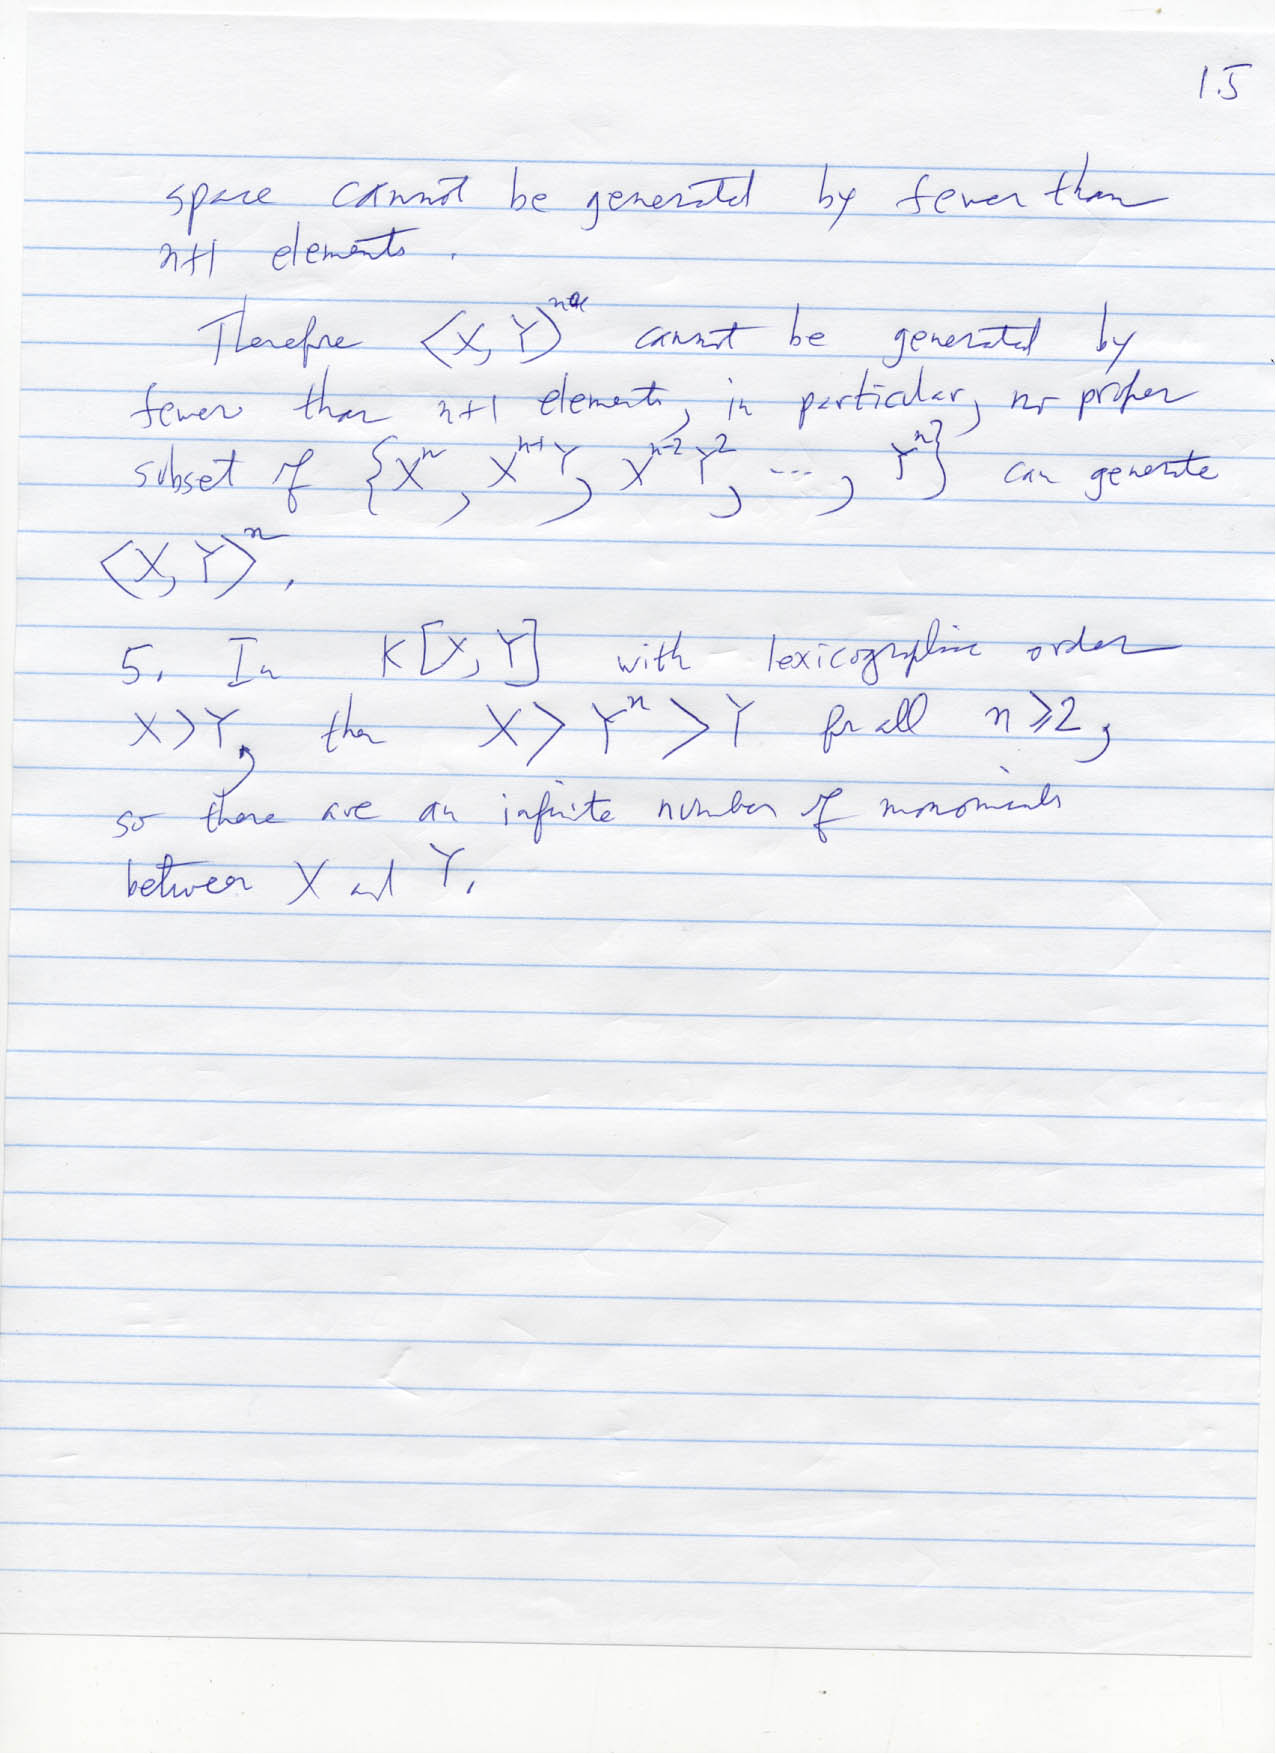 1.5
space cannot be generated by fewer than
n+1 elements.
Therefore <X, Y>^n cannot be generated by
fewer than n+1 elements, in particular, no proper
subset of {X^n, X^{n-1}Y, X^{n-2}Y^2, ..., Y^n} can generate
<X, Y>^n.
5. In K[X, Y] with lexicographic order
X>Y, then X > Y^n > Y for all n ≥ 2,
so there are an infinite number of monomials
between X and Y.